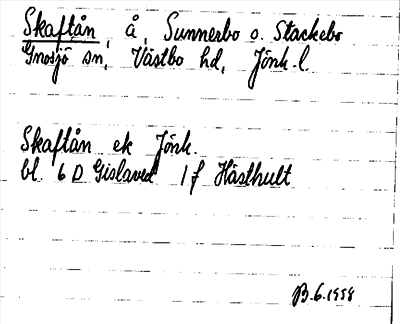 Skaftån, å, Sunnerbo o. Stackebo
Gnosjö sn, Västbo hd, Jönk. l.
Skaftån ek Jönk.
bl. 6 D Gislaved 1 f Hästhult
B.6.1958